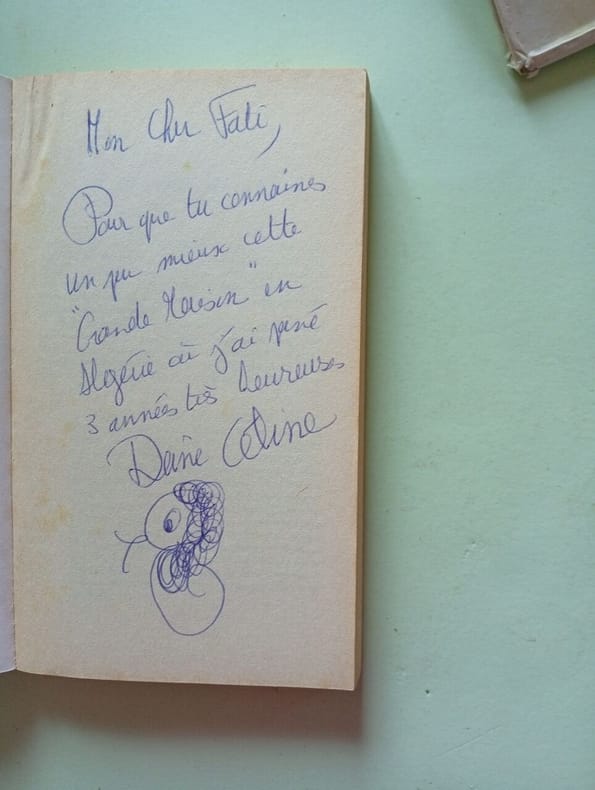 Mon Cher Fati,
Pour que tu connaisses
un peu mieux cette
"Grande Maison" en
Algérie où j'ai passé
3 années très heureuses
Céline